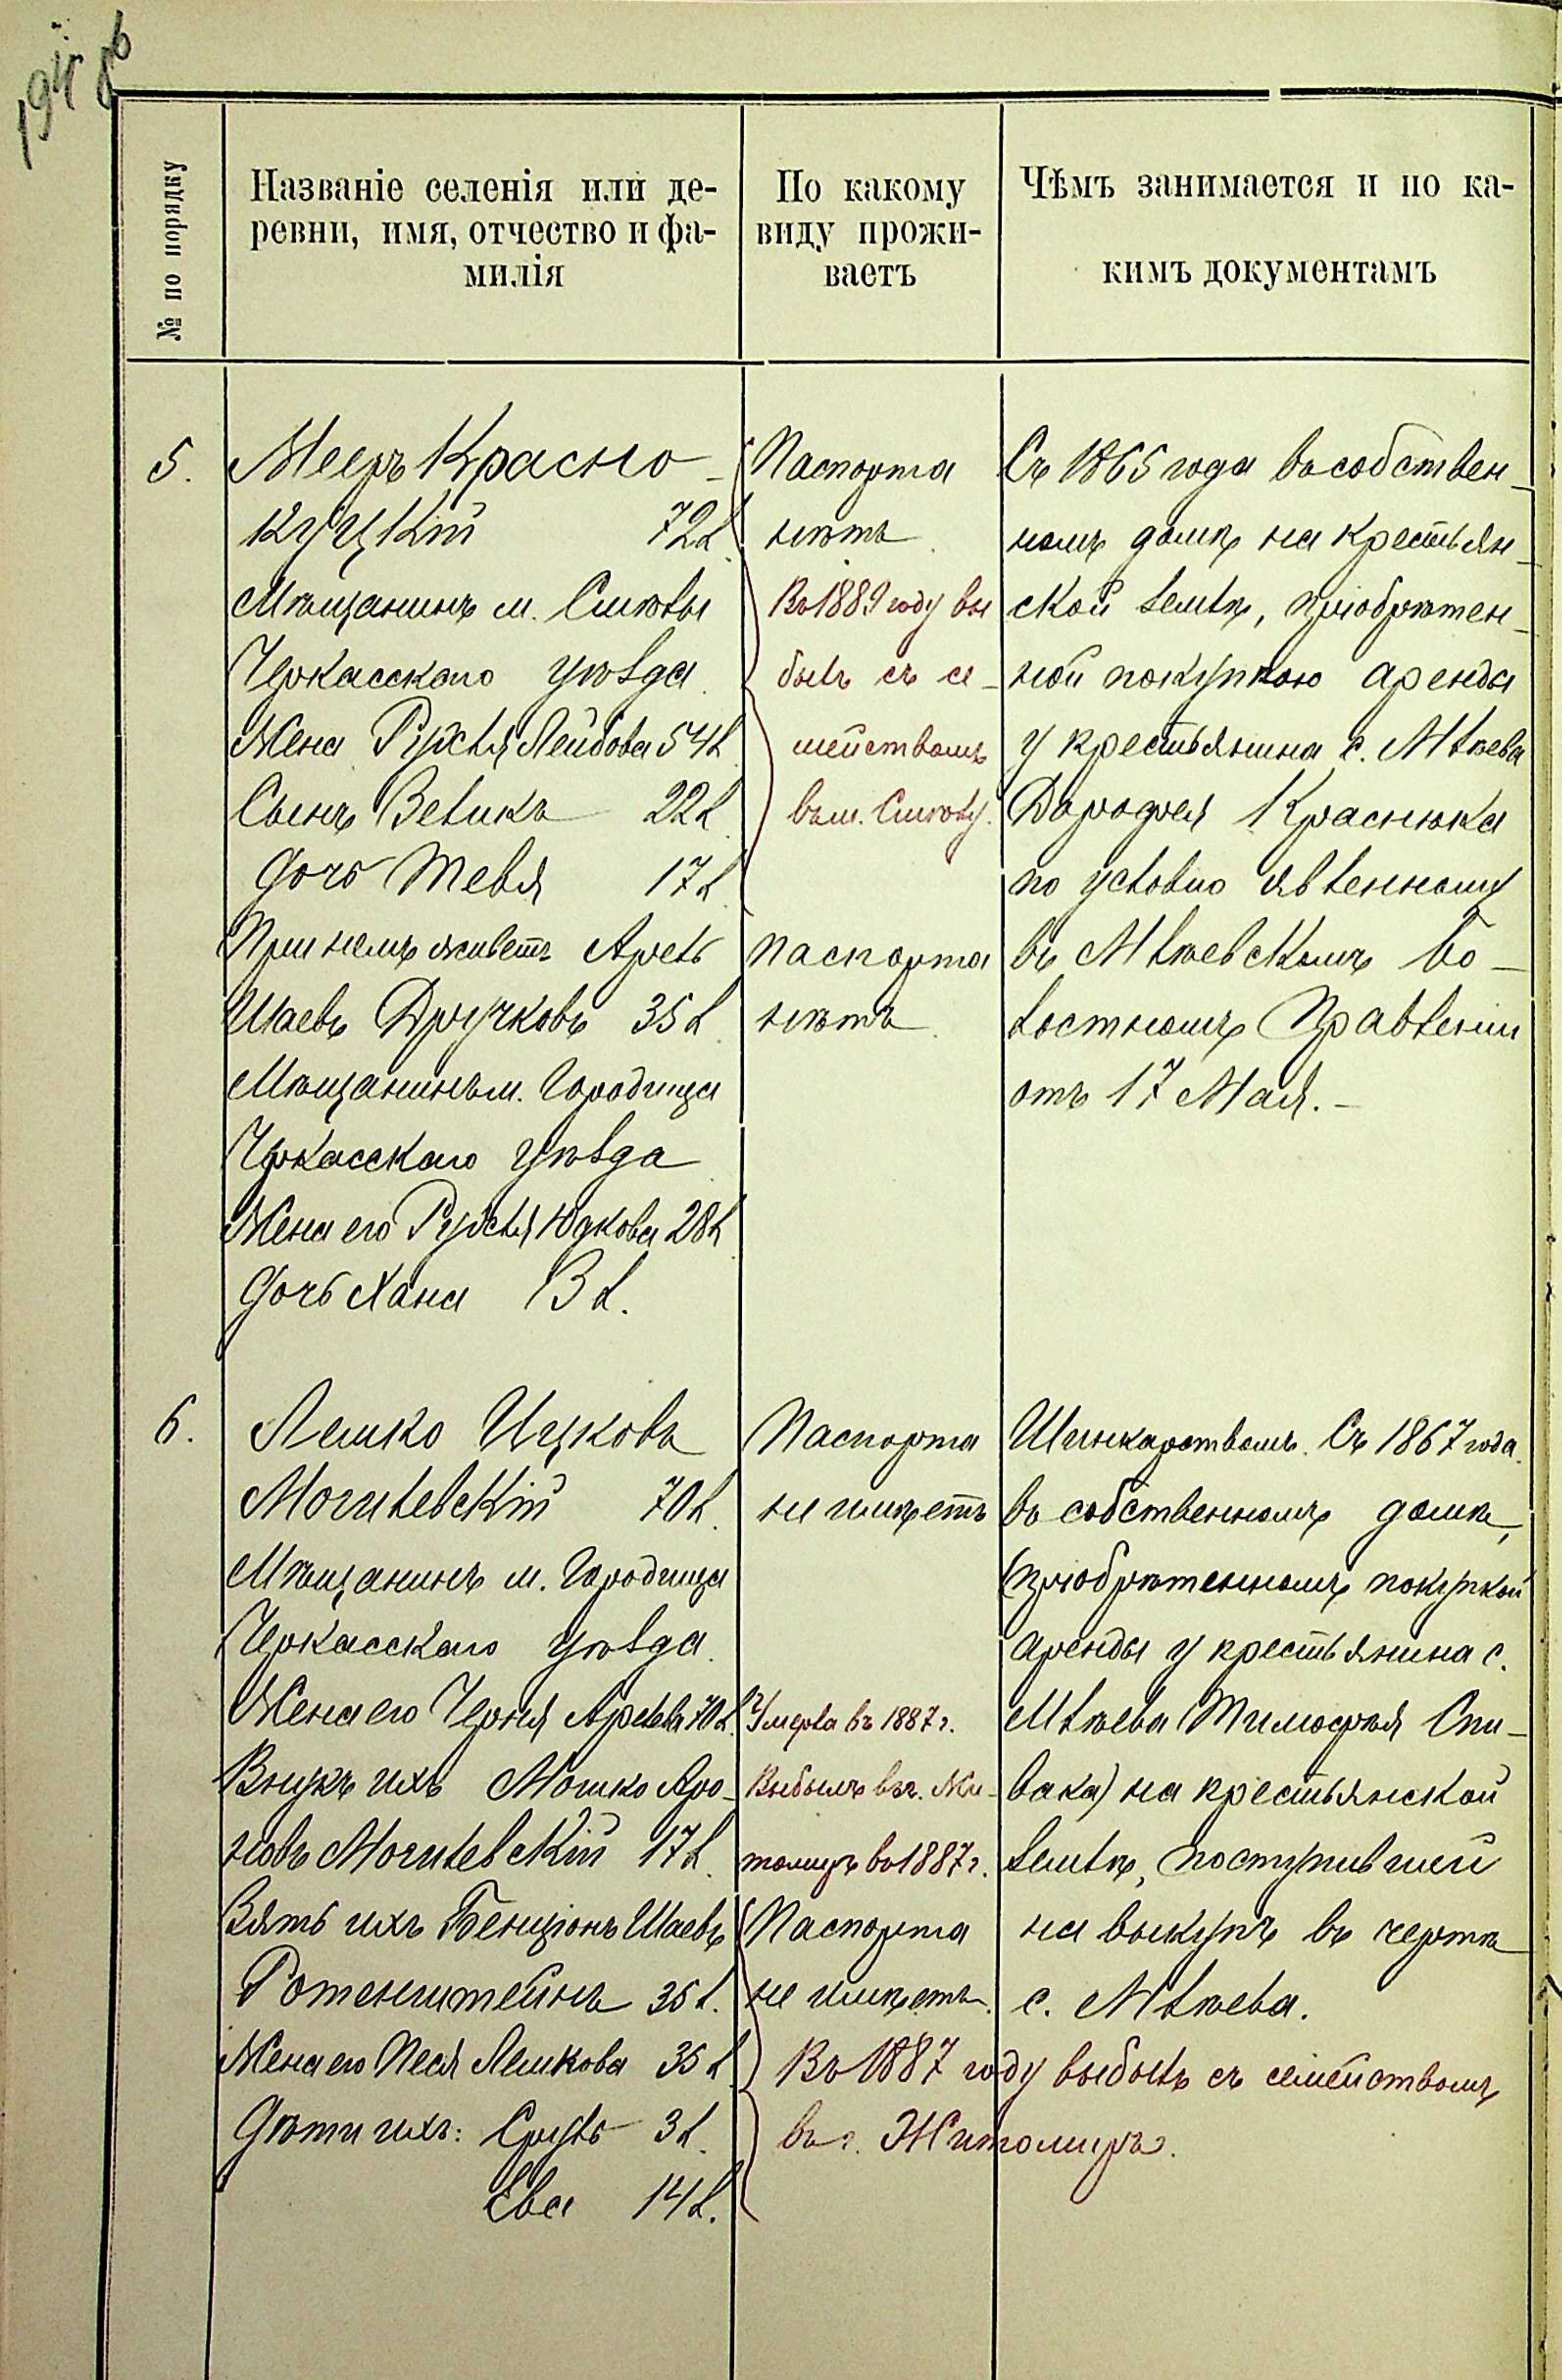 № по порядку
Названіе селенія или де-
ревни, имя, отчество и фа-
милія
По какому
виду прожи-
ваетъ
Чѣмъ занимается и по ка-
кимъ документамъ
5.
Мееръ Красно-
куцкій 72 л.
Мѣщанинъ м. Смѣлы
Черкасскаго уѣзда.
Жена Рухля Лейбова 54 л.
Сынъ Зеликъ 22 л.
Дочь Тевля 17 л.
При немъ живетъ Арель
Шаевъ Дручковъ 35 л.
Мѣщанинъ м. Городища
Черкасскаго уѣзда
Жена его Рухля Юдкова 28 л.
Дочь Хана 13 л.
Паспорта
нѣтъ.
Въ 1889 году вы
былъ съ се-
мействомъ
въ м. Смѣлу.
паспорта
нѣтъ.
Съ 1865 года въ собствен-
номъ домѣ на крестьян-
ской землѣ, пріобрѣтен-
ной покупкою аренды
у крестьянина с. Млѣева
Дорофея Краснюка
по условію явленному
въ Млѣевскомъ Во-
лостномъ Правленіи
отъ 17 Мая.-
6.
Лемко Ицковъ
Могилевскій 70 л.
Мѣщанинъ м. Городища
Черкасскаго уѣзда.
Жена его Черня Арелева 70 л.
Внукъ ихъ Мошко Аро-
новъ Могилевскій 17 л.
Зять ихъ Бенціонъ Шаевъ
Ротенштейнъ 35 л.
Жена его Песя Лемкова 35 л.
Дѣти ихъ: Сруль 3 л.
Ева 14 л.
Паспорта
не имѣетъ
Умерла въ 1887 г.
Выбылъ въ г. Жи-
томиръ въ 1887 г.
Паспорта
не имѣетъ.
Въ 1887 году выбылъ съ семействомъ
въ г. Житомиръ.
Шинкарствомъ. Съ 1867 года
въ собственномъ домѣ,
(пріобрѣтенномъ покупкой
аренды у крестьянина с.
Млѣева Тимофѣя Спи-
вака) на крестьянской
землѣ, поступившей
на выкупъ въ чертѣ
с. Млѣева.